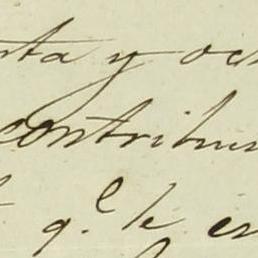 nta y och
contribu
q.e le en